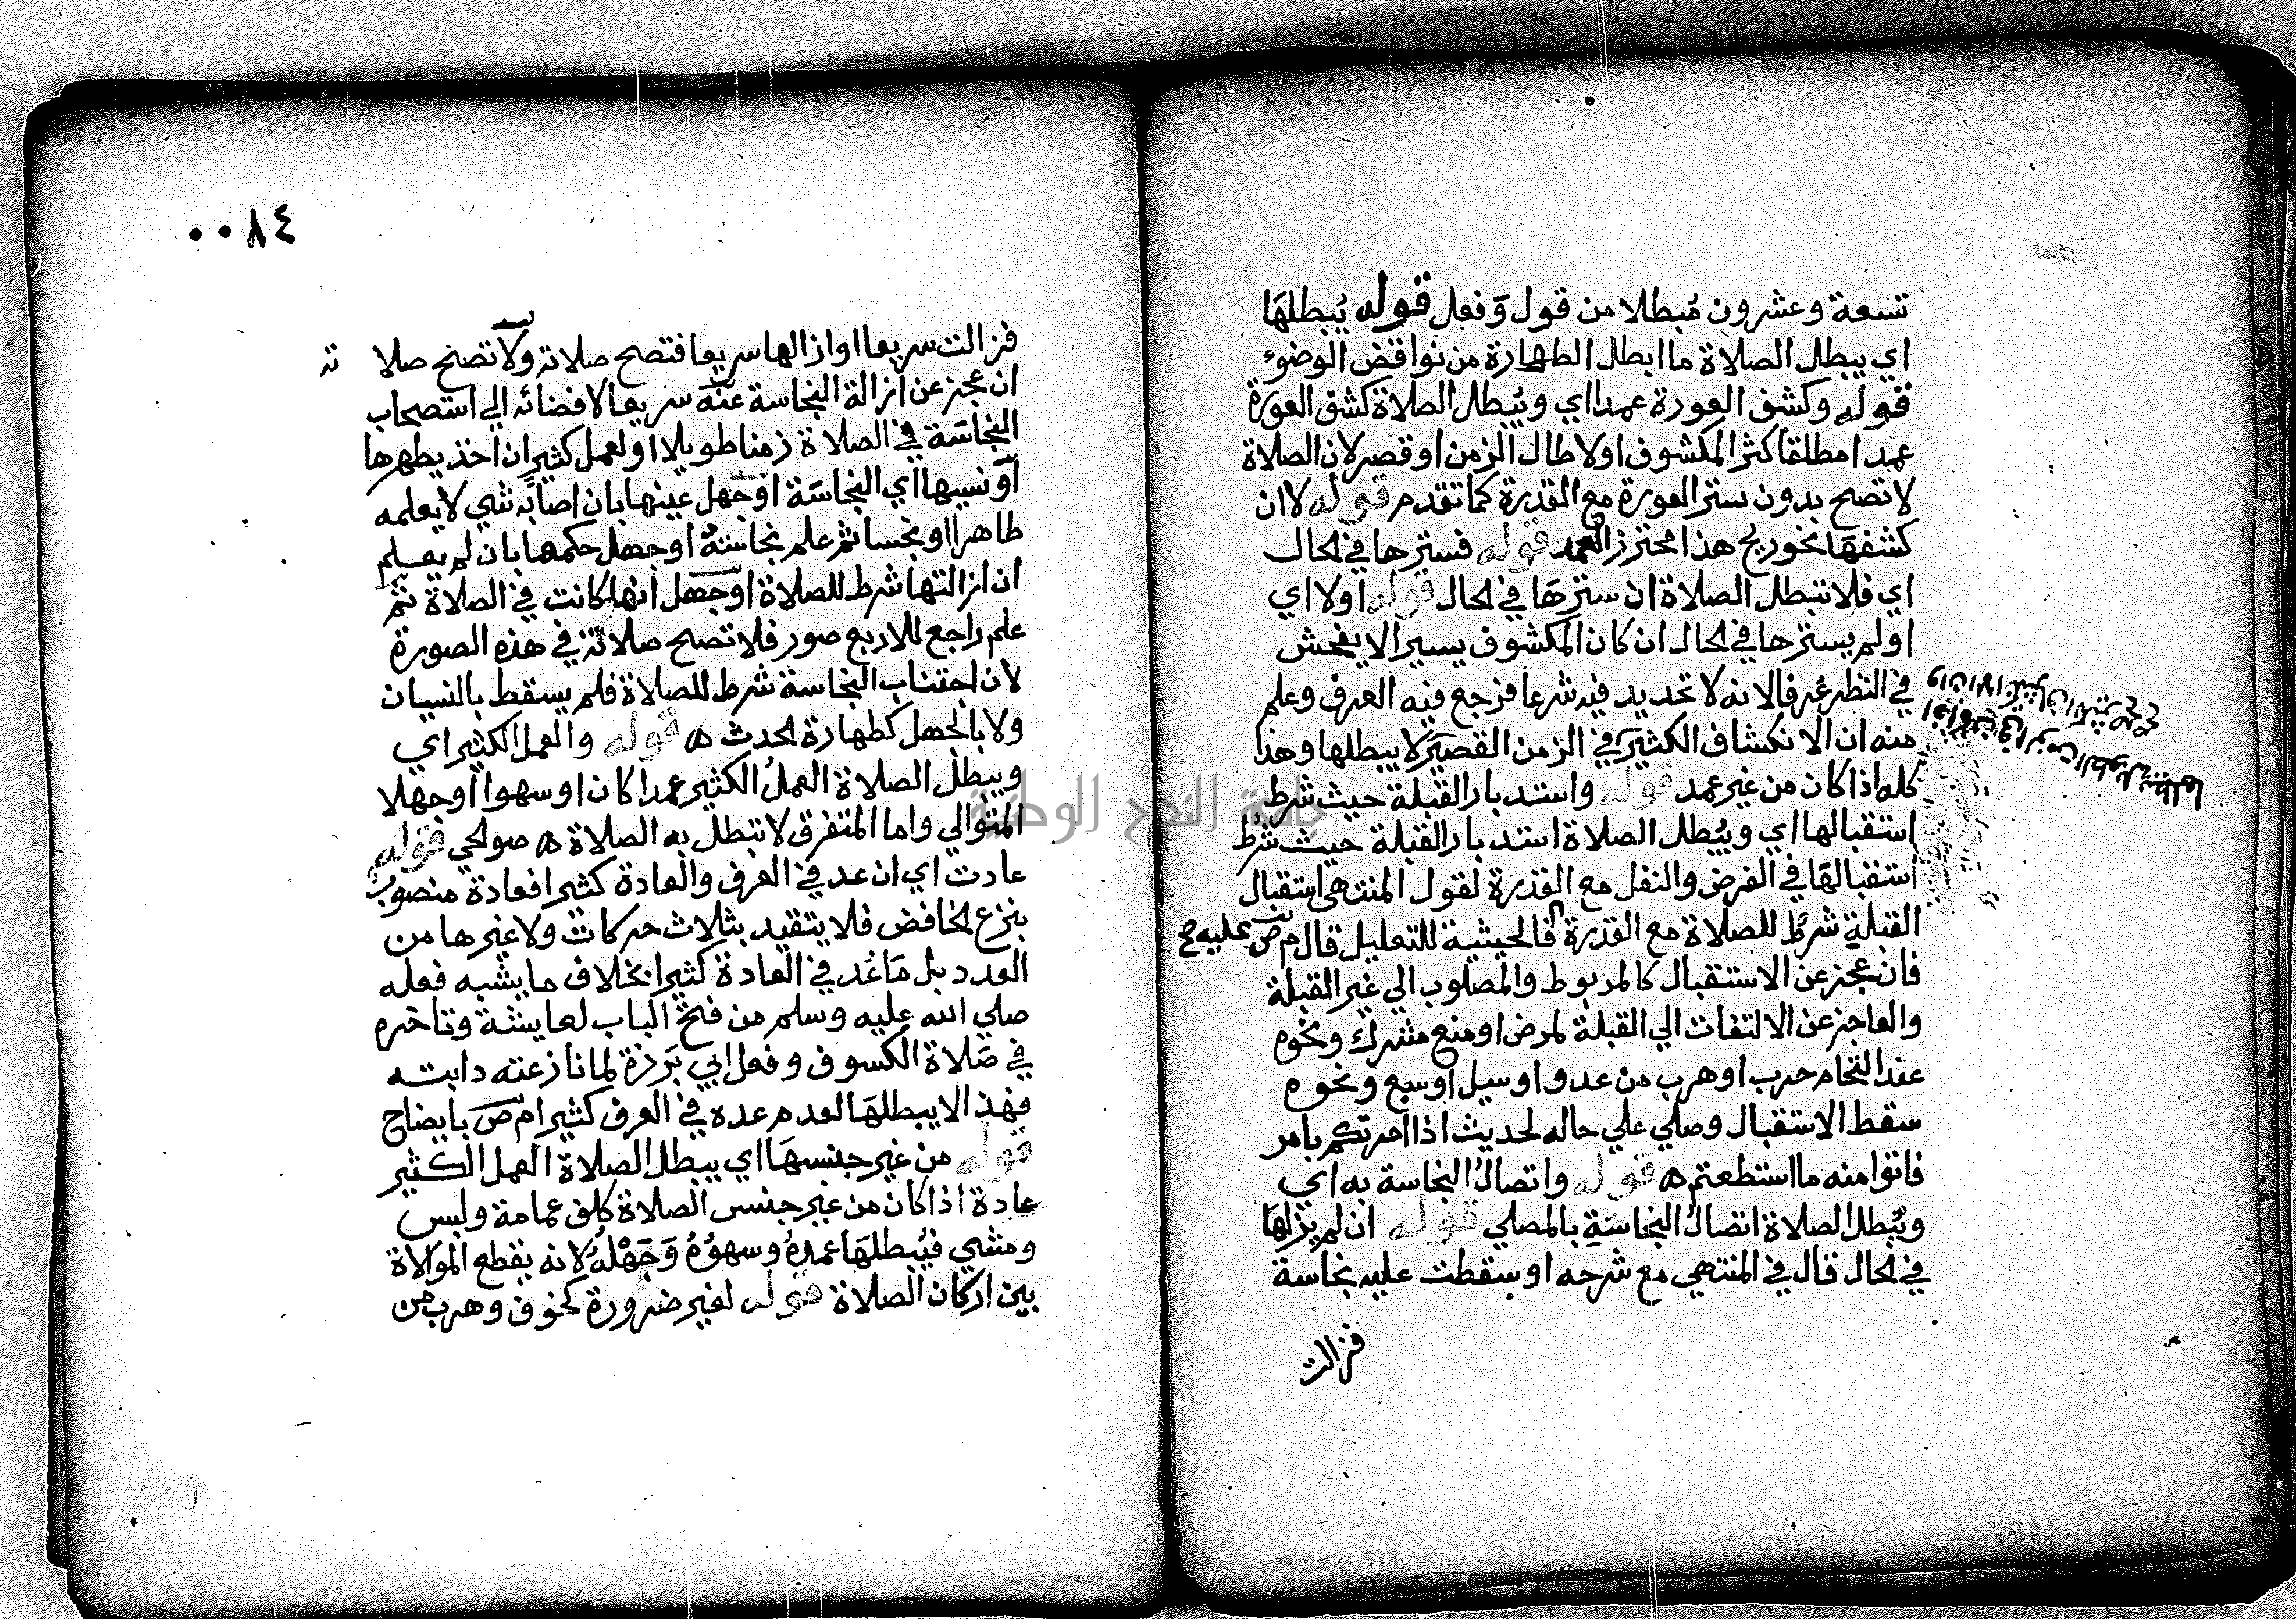 تسعة وعشرون مُبطلا من قول وَفعل قوله يُبطلهَا
اي يبطل الصلاة ما ابطل الطهارة من نواقض الوضوء
قوله وكشف العورة عمدا اي ويُبطل الصلاة كشف العورة
عمدا مطلقا كثر المكشوف اولا طال الزمن او قصر لان الصلاة
لا تصح بدون ستر العورة مع القدرة كما تقدم قوله لا ان
كشفهَا نحو ريح هذا محترز العمد قوله فسترها في لحال
اي فلا تبطل الصلاة ان سترهَا في لحال قوله اولا اي
او لم يسترها في لحال ان كان المكشوف يسيرا لا يفحش
في النظر عرفا لانه لا تحديد فيه شرعا فرجع فيه العرف وعلم
منه ان الانكشاف الكثير في الزمن القصير لا يبطلها وهذا
كله اذا كان من غير عمد قوله واستدبار القبلة حيث شرط
استقبالها اي ويُبطل الصلاة استدبار القبلة حيث شرط
استقبالهَا في الفرض والنفل مع القدرة لقول المنتهى استقبال
القبلةِ شرط للصلاة مع القدرة فالحيثية للتعليل قال م ص عليه
فان عجز عن الاستقبال كالمربوط والمصلوب الي غير القبلة
والعاجز عن الالتفات الي القبلة لمرض او منع مشرك ونحوه
عند التحام حرب او هرب من عدو او سيل او سبع ونحوه
سقط الاستقبال وصلي علي حاله لحديث اذا امرتكم بامر
فاتوا منه ما استطعتم ه قوله واتصالُ النجاسة به اي
ويُبطل الصلاة اتصالُ النجاسَةِ بالمصلي قوله ان لم يزلهَا
في لحال قال في المنتهي مع شرحه او سقطت عليه نجاسة
فزالت
٠٠٨٤
فزالت سريعا او ازالها سريعا فتصح صلاته ولا تصح صلا ته
ان عجز عن ازالة النجاسة عنه سريعا لافضائه الي استصحاب
النجاسَة في الصلاة زمنا طويلا او لعمل كثير ان اخذ يطهرها
او نسيها اي النجاسَة او جهل عينها بان اصابه شي لا يعلمه
طاهرا او نجسا ثم علم نجاسته او جهل حكمها بان لم يعلم
ان ازالتها شرط للصلاة او جهل انها كانت في الصلاة ثم
علم راجع للاربع صور فلا تصح صلاته في هذه الصورة
لان اجتناب النجاسة شرط للصلاة فلم يسقط بالنسيان
ولا بالجهل كطهارة لحدث ه قوله والعمل الكثير اي
ويبطل الصلاة العملُ الكثير عمدا كان او سهوا او جهلا
المتوالي واما المتفرق لا تبطل به الصلاة ه صوالحي قوله
عادت اي ان عد في العرف والعادة كثيرا فعادة منصوب
بنزع لخافض فلا يتقيد بثلاث حركات ولا غيرها من
العدد بل مَا عُد في العادة كثيرا بخلاف ما يشبه فعله
صلي الله عليه وسلم من فتح الباب لعايشة وتاخره
في صَلاة الكسوف وفعل ابي بَرزة لما نازعته دابته
فهذا لا يبطلهَا لعدم عده في العرف كثيرا م ص بايضاح
قوله من غير جنسهَا اي يبطل الصلاة العمل الكثير
عادة اذا كان من غير جنس الصلاة كلف عمامة ولبس
ومشي فيُبطلهَا عمدُهُ وسهوُهُ وَجَهْلُهُ لانه يقطع الموالاة
بين اركان الصلاة قوله لغير ضرورة كخوف وهرب من
جامعة النجاح الوطنية